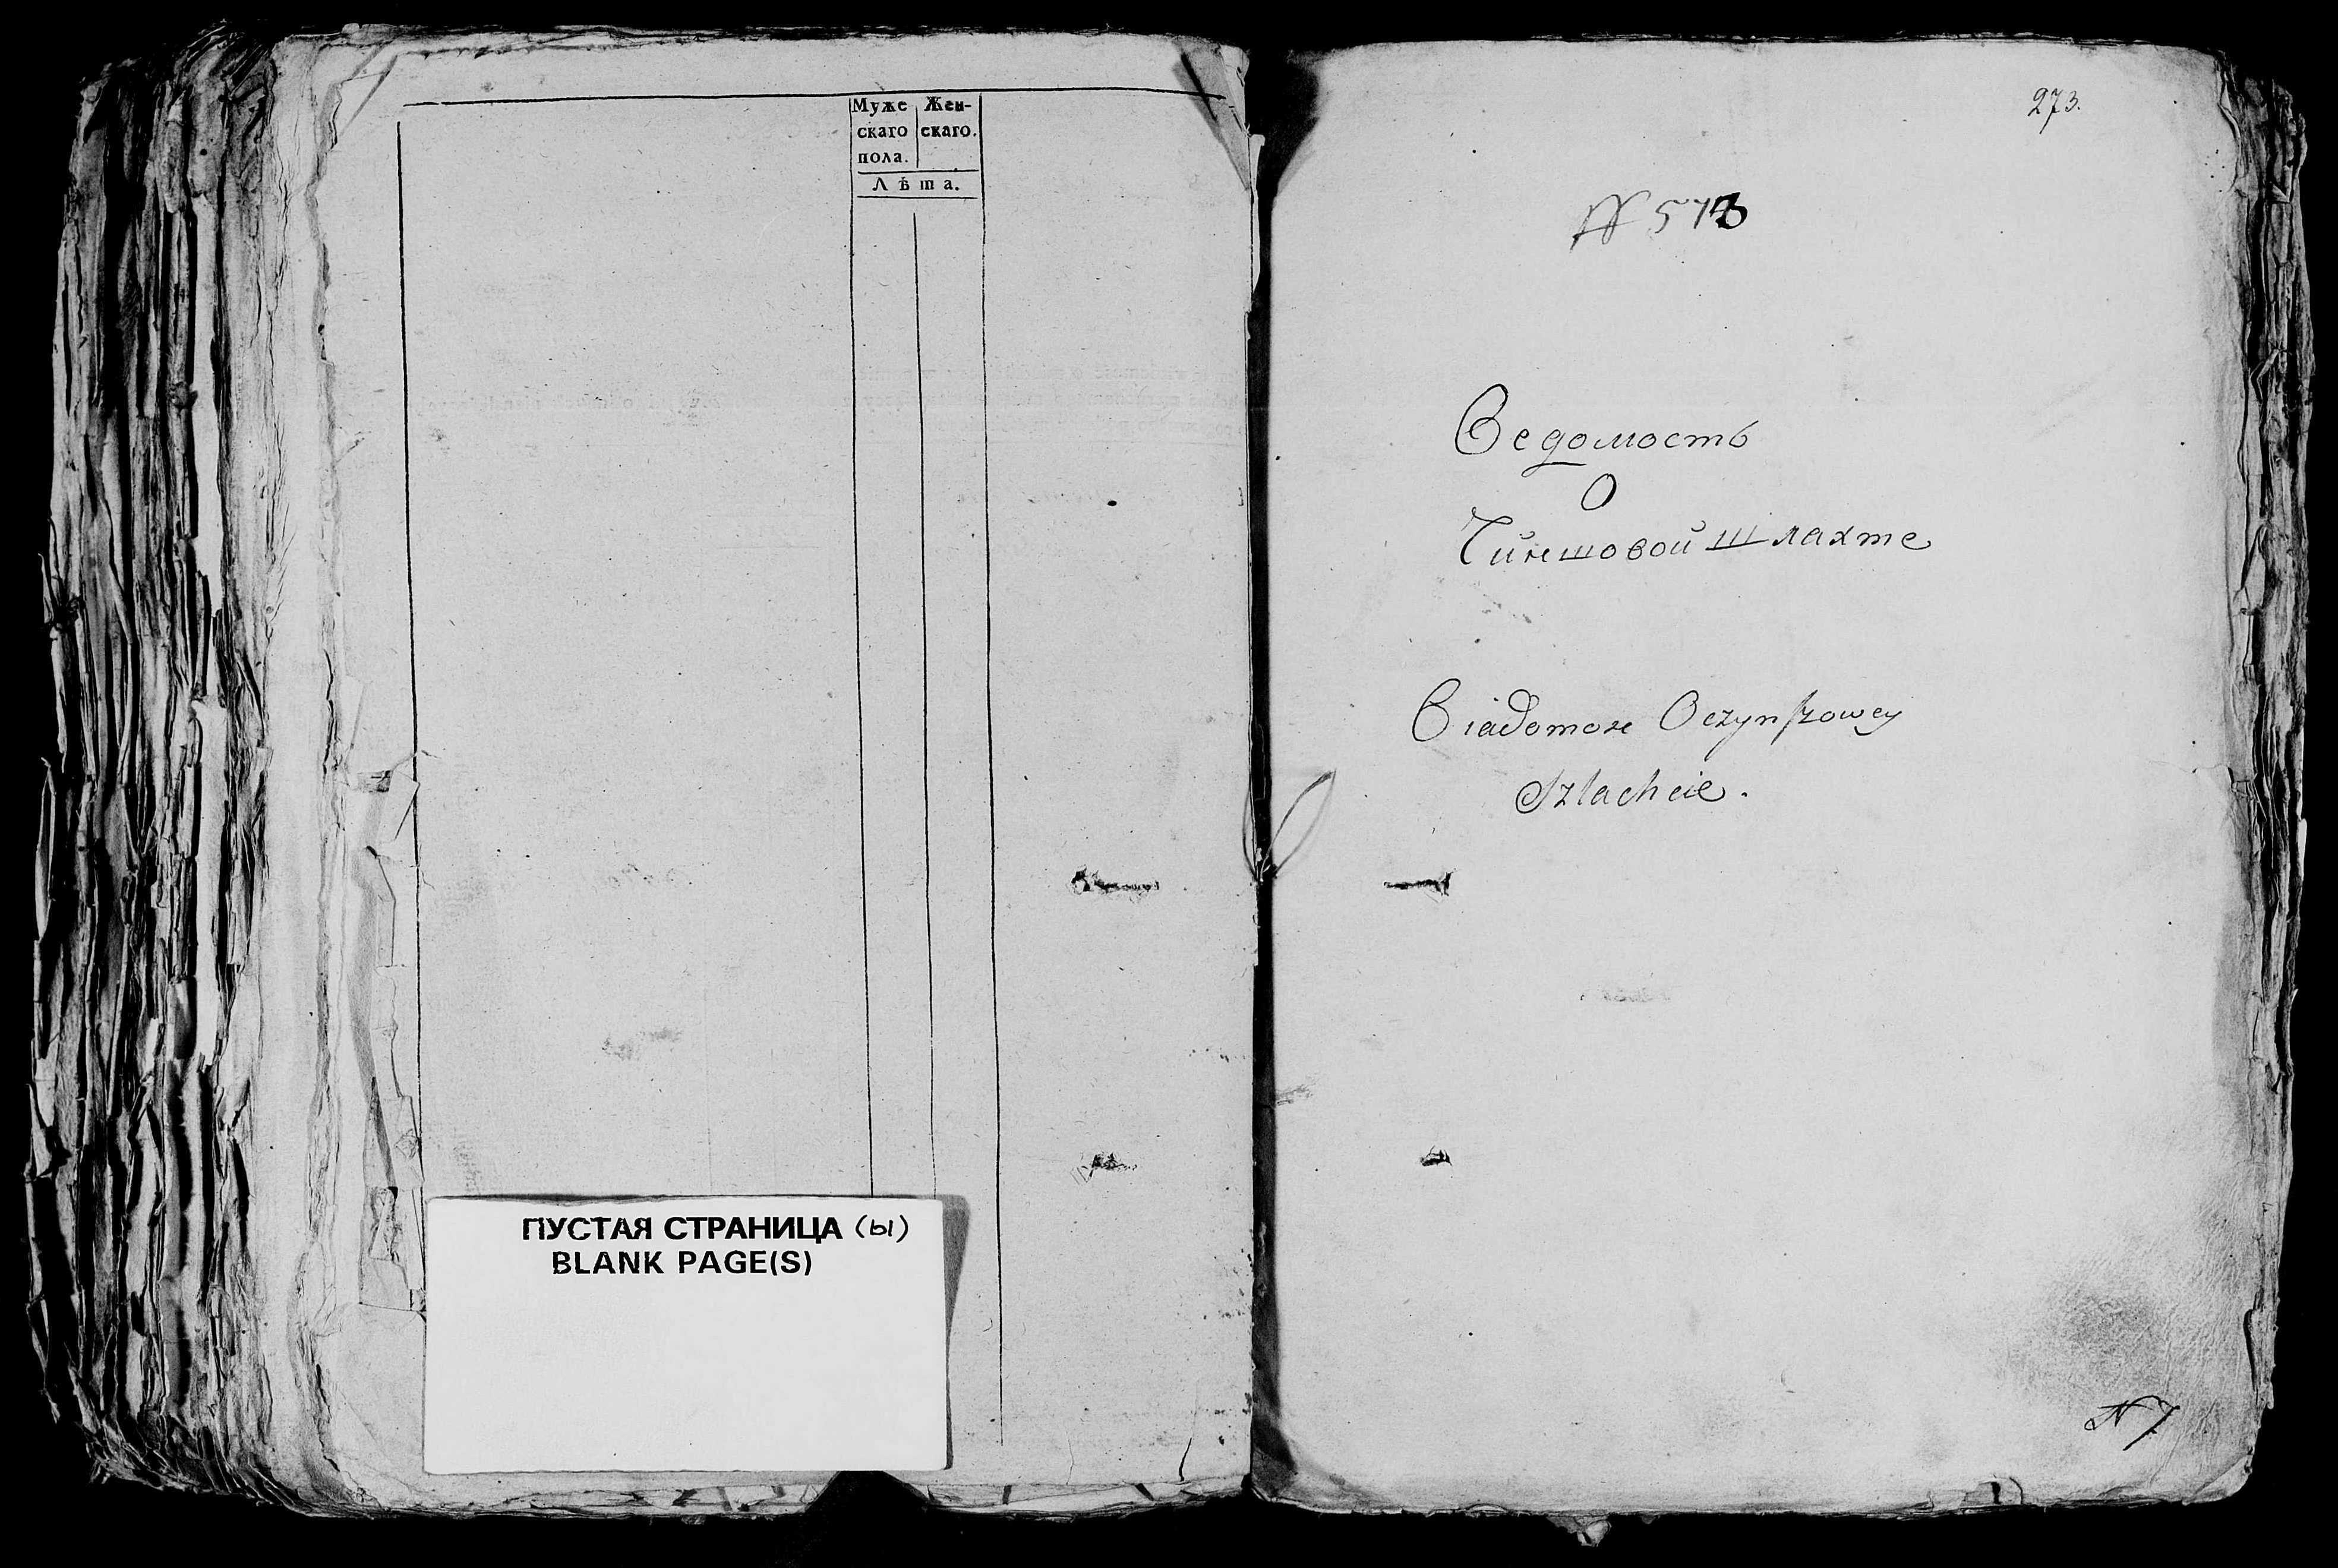 Муже Жен-
скаго скаго.
пола.
Лѣта.
ПУСТАЯ СТРАНИЦА (ы)
BLANK PAGE(S)
273.
N 573
Ведомость
О
Чиншовой шлахте
Wiadomosc Oczynszowey
Szlachcie.
N 7